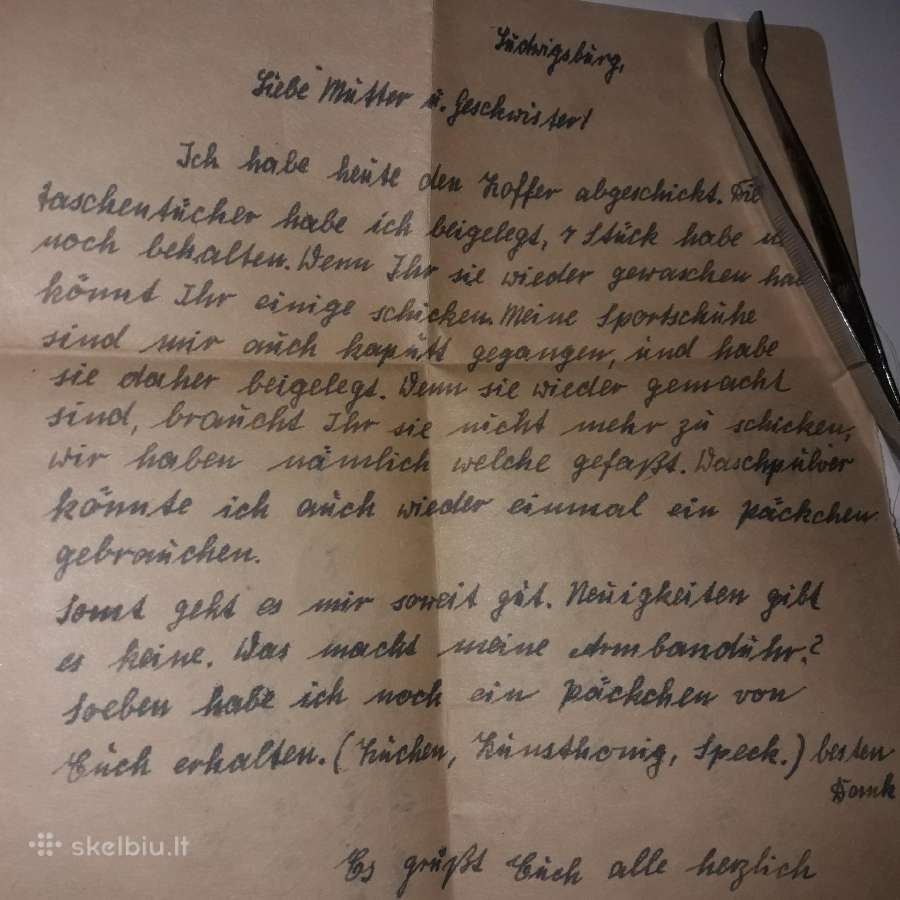 Ludwigsburg,
Liebe Mutter u. Geschwister!
Ich habe heute den Koffer abgeschickt. Die
Taschentücher habe ich beigelegt, 7 Stück habe
noch behalten. Wenn Ihr sie wieder gewaschen
könnt Ihr einige schicken. Meine Sportschuhe
sind mir auch kaputt gegangen, und habe
sie daher beigelegt. Wenn sie wieder gemacht
sind, braucht Ihr sie nicht mehr zu schicken,
wir haben nämlich welche gefaßt. Waschpulver
könnte ich auch wieder einmal ein Päckchen
gebrauchen.
Somt geht es mir soweit gut. Neuigkeiten gibt
es keine. Was macht meine Armbanduhr?
Soeben habe ich noch ein Päckchen von
Euch erhalten. (Kuchen, Kunsthonig, Speck.) besten
Dank
Es grüßt Euch alle herzlich
skelbiu.lt